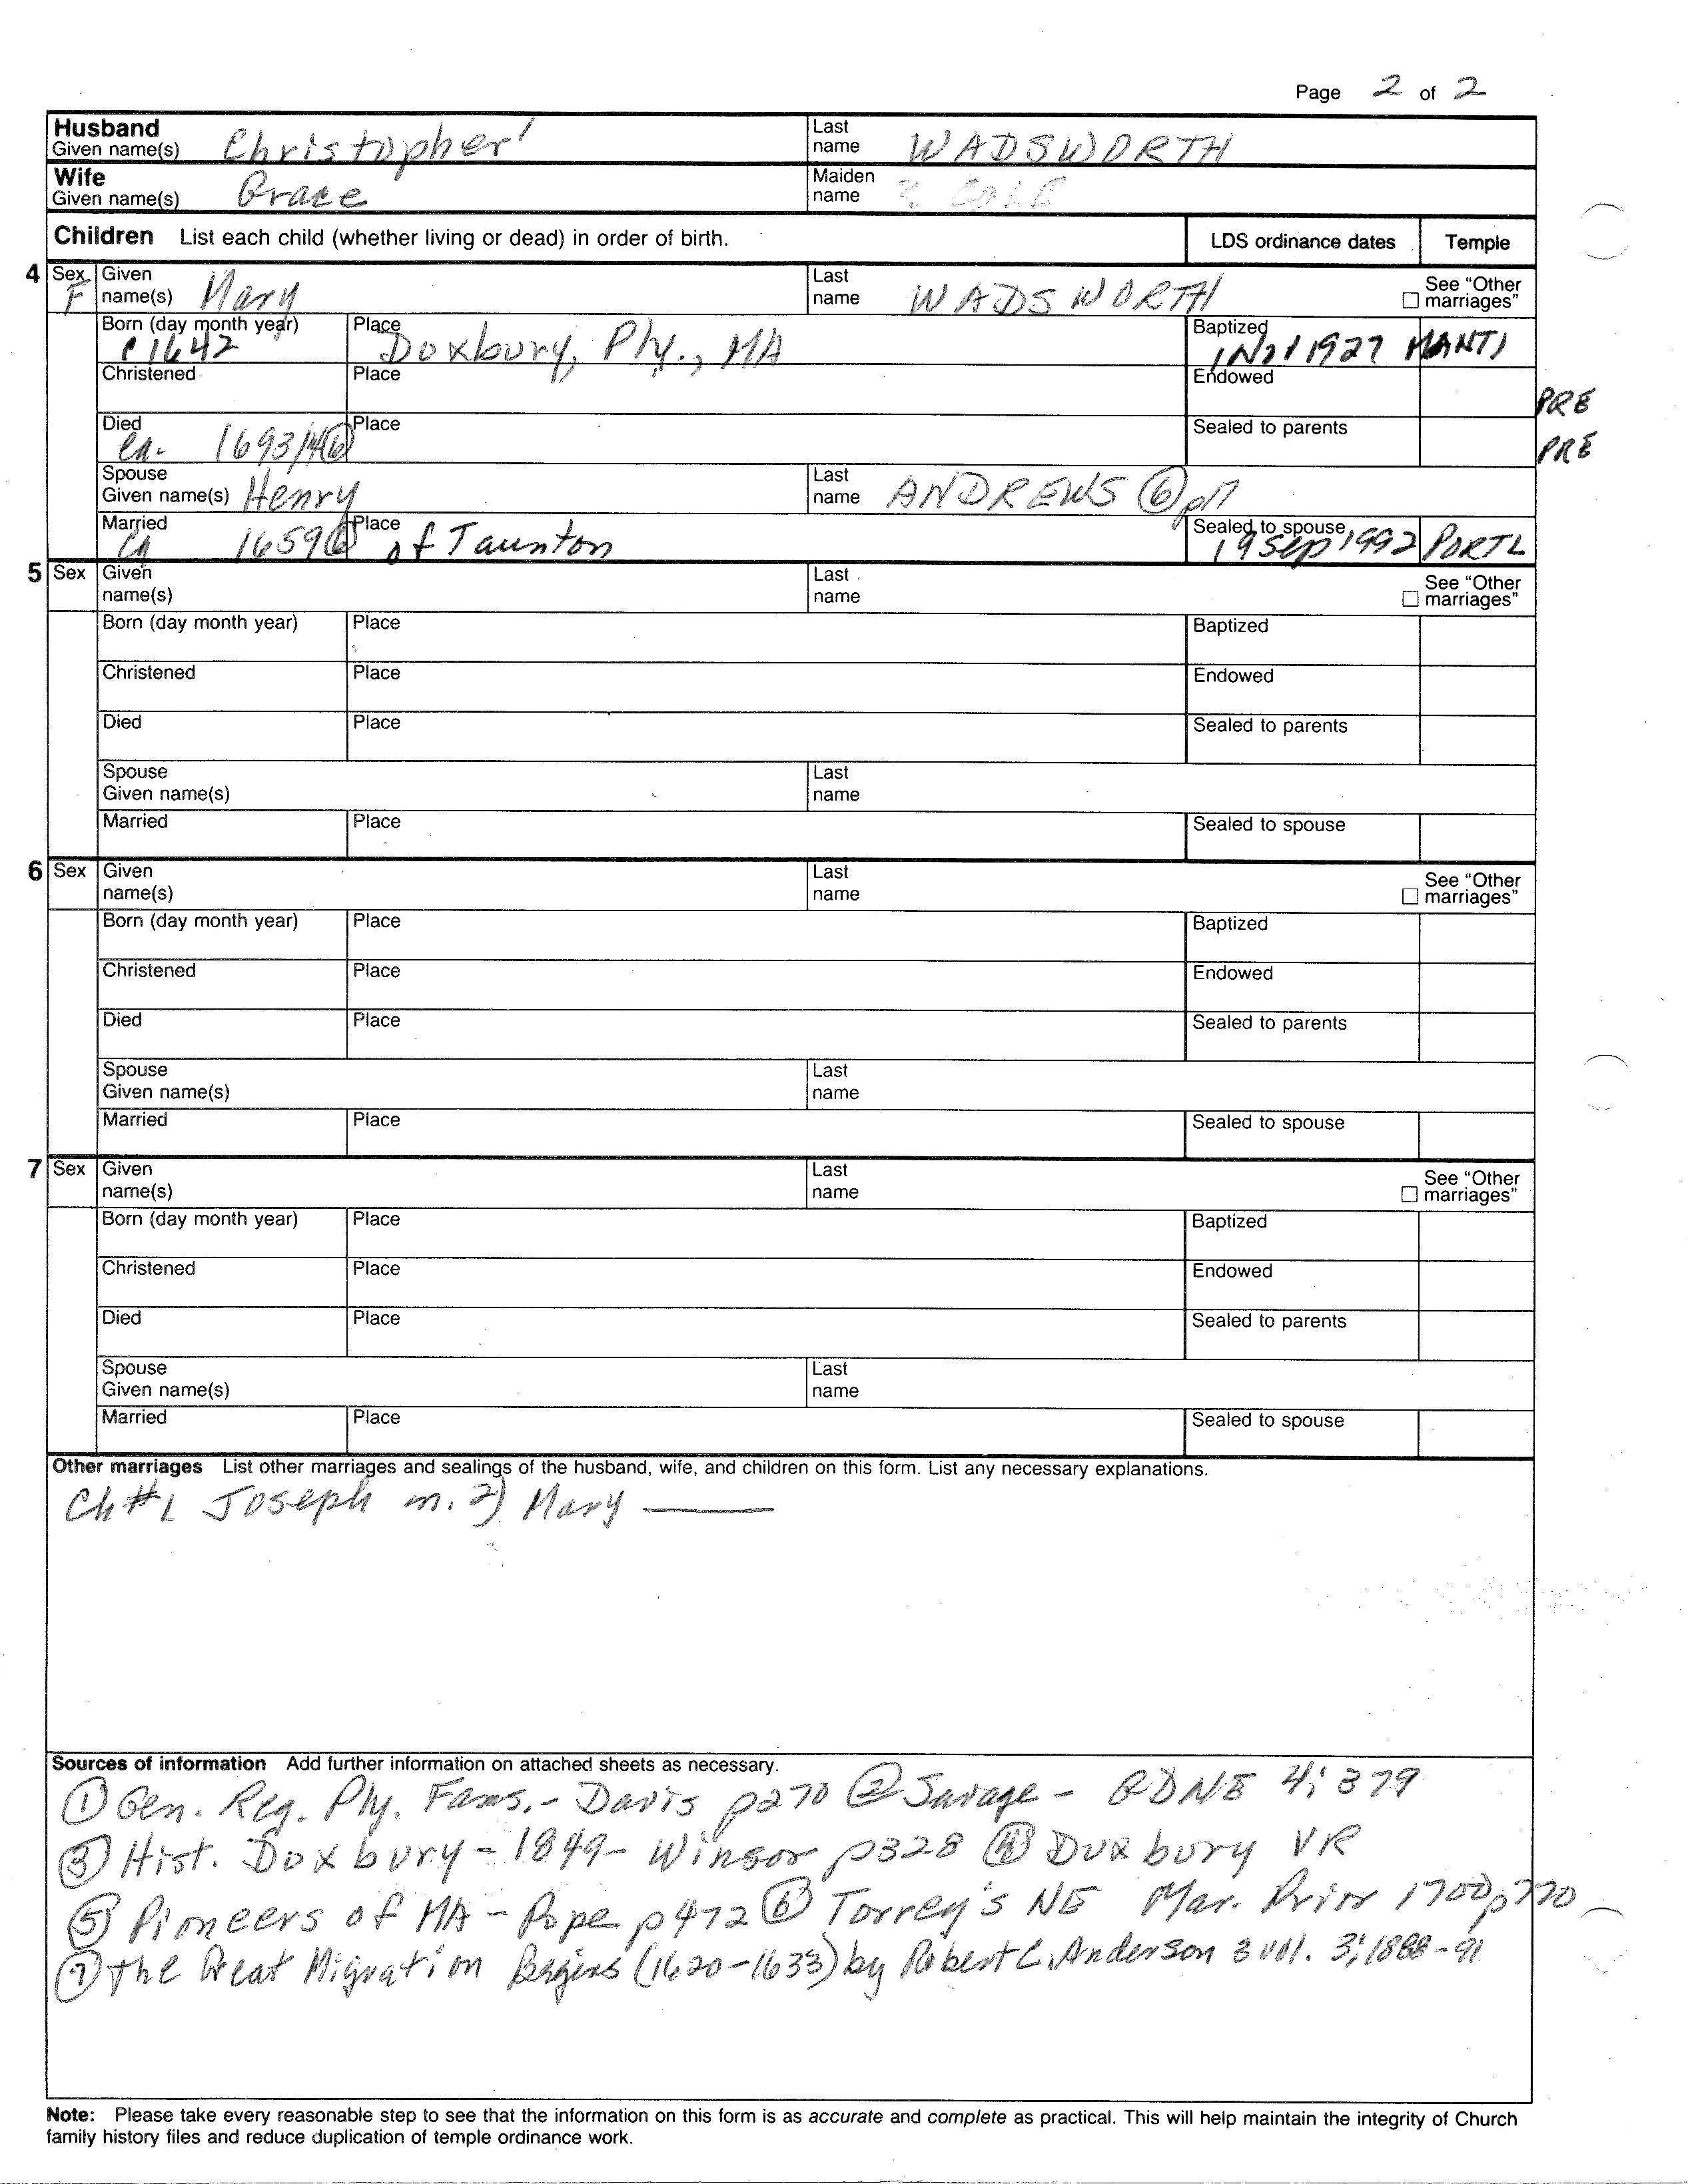 Page 2 of 2
Husband Given name(s) Christopher¹ Last name WADSWORTH
Wife Given name(s) Grace Maiden name ? COLE
Children List each child (whether living or dead) in order of birth. LDS ordinance dates Temple
4 Sex F Given name(s) Mary Last name WADSWORTH See "Other marriages"
Born (day month year) c 1642 Place Duxbury, Ply., MA Baptized 1927 MANTI
Christened Place Endowed PRE
Died ca. 1693/4 ⑥ Place Sealed to parents PRE
Spouse Given name(s) Henry Last name ANDREWS ⑥ p17
Married ca 1659 ⑥ Place of Taunton Sealed to spouse 19 Sep 1992 PORTL
5 Sex Given name(s) Last name See "Other marriages"
Born (day month year) Place Baptized
Christened Place Endowed
Died Place Sealed to parents
Spouse Given name(s) Last name
Married Place Sealed to spouse
6 Sex Given name(s) Last name See "Other marriages"
Born (day month year) Place Baptized
Christened Place Endowed
Died Place Sealed to parents
Spouse Given name(s) Last name
Married Place Sealed to spouse
7 Sex Given name(s) Last name See "Other marriages"
Born (day month year) Place Baptized
Christened Place Endowed
Died Place Sealed to parents
Spouse Given name(s) Last name
Married Place Sealed to spouse
Other marriages List other marriages and sealings of the husband, wife, and children on this form. List any necessary explanations.
Ch#1 Joseph m. 2) Mary ———
Sources of information Add further information on attached sheets as necessary.
① Gen. Reg. Ply. Fams.- Davis p270 ② Savage - GDNE 4; 379
③ Hist. Duxbury - 1849 - Winsor p328 ④ Duxbury VR
⑤ Pioneers of MA - Pope p472 ⑥ Torrey's NE Mar. Prior 1700 p770
⑦ The Great Migration Begins (1620-1633) by Robert C. Anderson 3 vol. 3; 1888-91
Note: Please take every reasonable step to see that the information on this form is as accurate and complete as practical. This will help maintain the integrity of Church
family history files and reduce duplication of temple ordinance work.